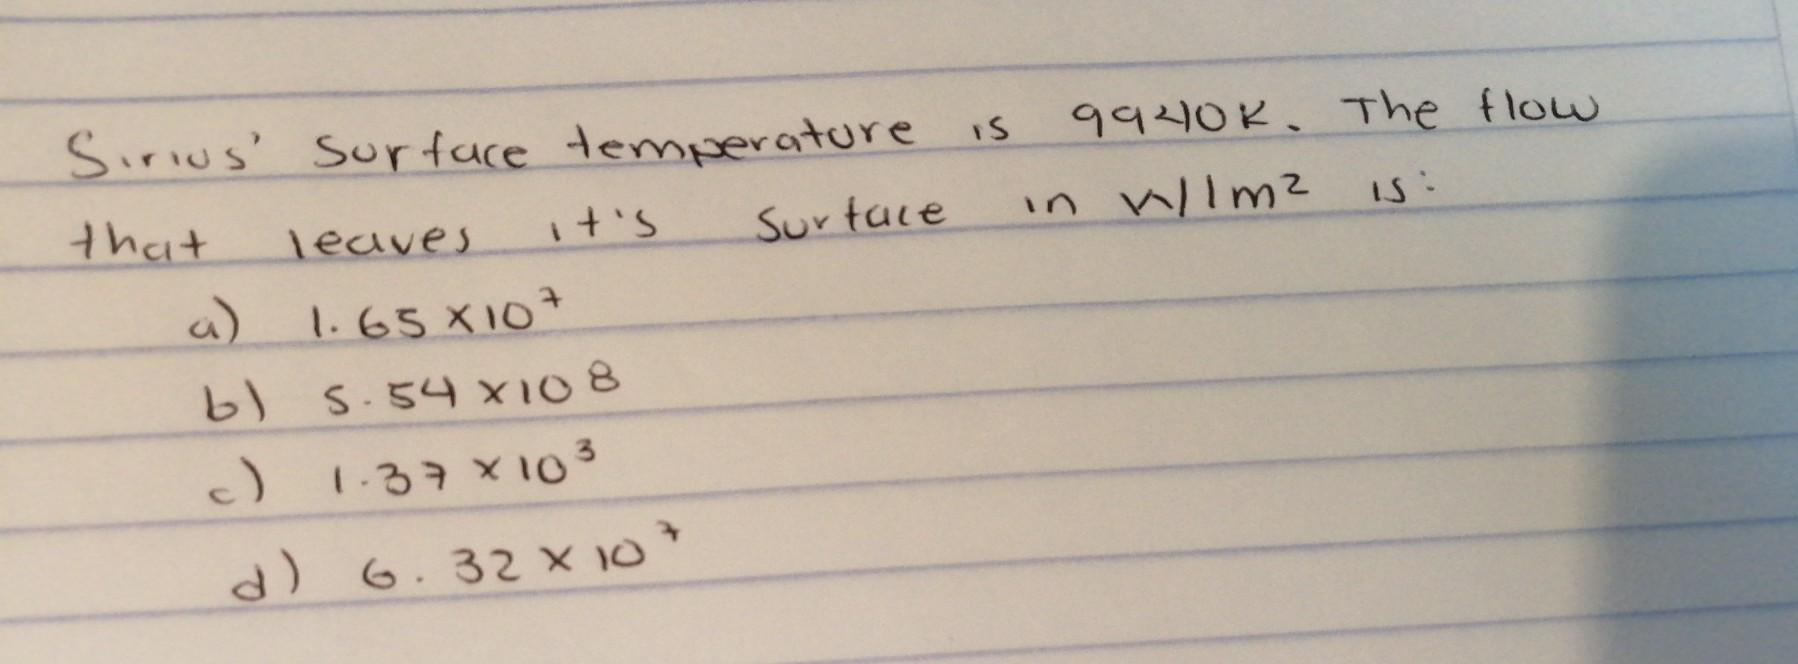 Sirius' Surface temperature is 9940K. The flow
that leaves it's Surface in W/1m²  is:
a) 1.65 x10⁷
b) 5.54 x10 8
c) 1.37 x 10³
d) 6.32 x 10⁷